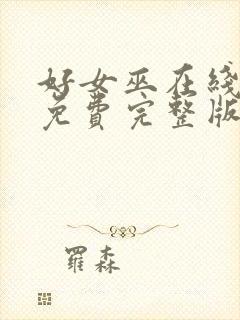 好女巫在线
免费完整版
羅森